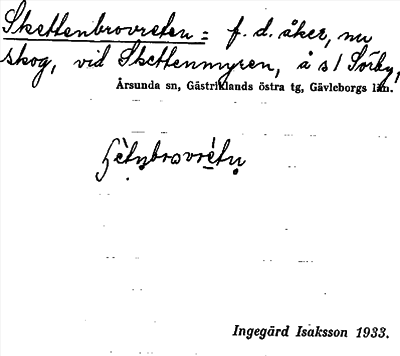 Skettenbrovreten: f. d. åker, nu
skog, vid Skettenmyren, å s/ Sörby,
Årsunda sn, Gästriklands östra tg, Gävleborgs län.
Ingegärd Isaksson 1933.